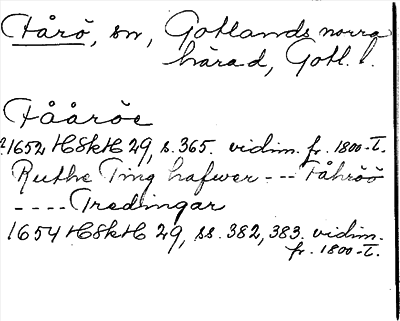 Fårö, sn, Gotlands norra
härad, Gotl. l.
Fååröe
1652 HSkH 29, s. 365. vidim. fr. 1800-t.
Ruthe Ting hafwer --- Fåhröö
---- Tredingar
1654 HSkH 29, ss. 382, 383. vidim.
fr. 1800-t.